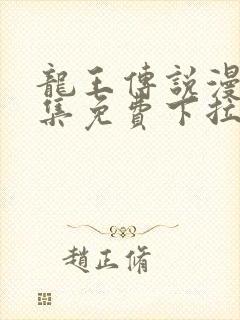 龍王傳說漫
集免費下拉
趙正脩